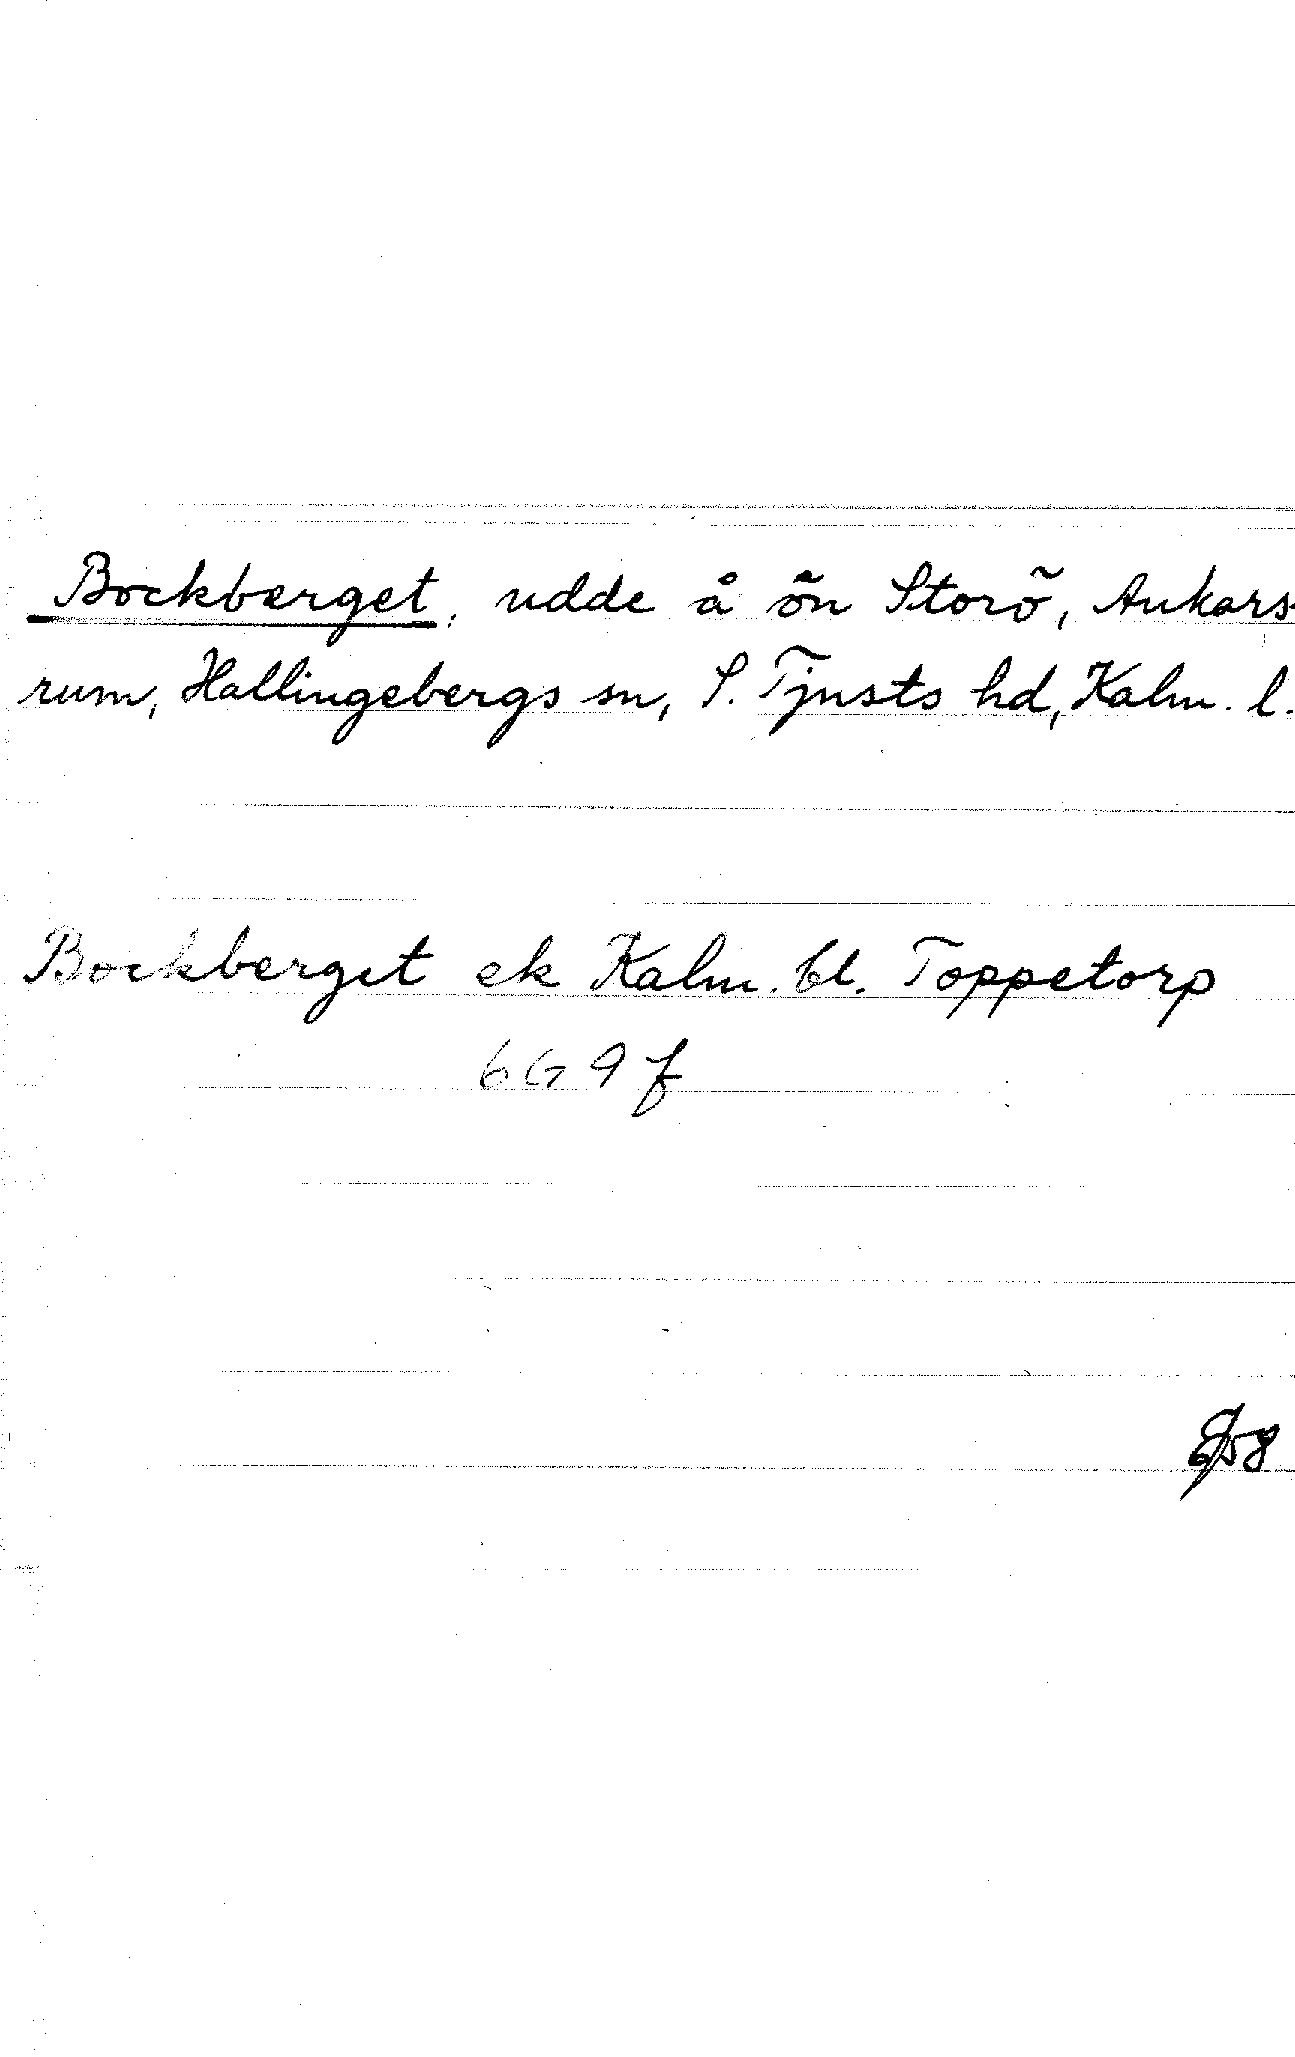 Bockberget, udde å ön Storö, Ankars-
rum, Hallingebergs sn, S. Tjusts hd, Kalm. l.
Bockberget ek Kalm. bl. Toppetorp
6G 9f